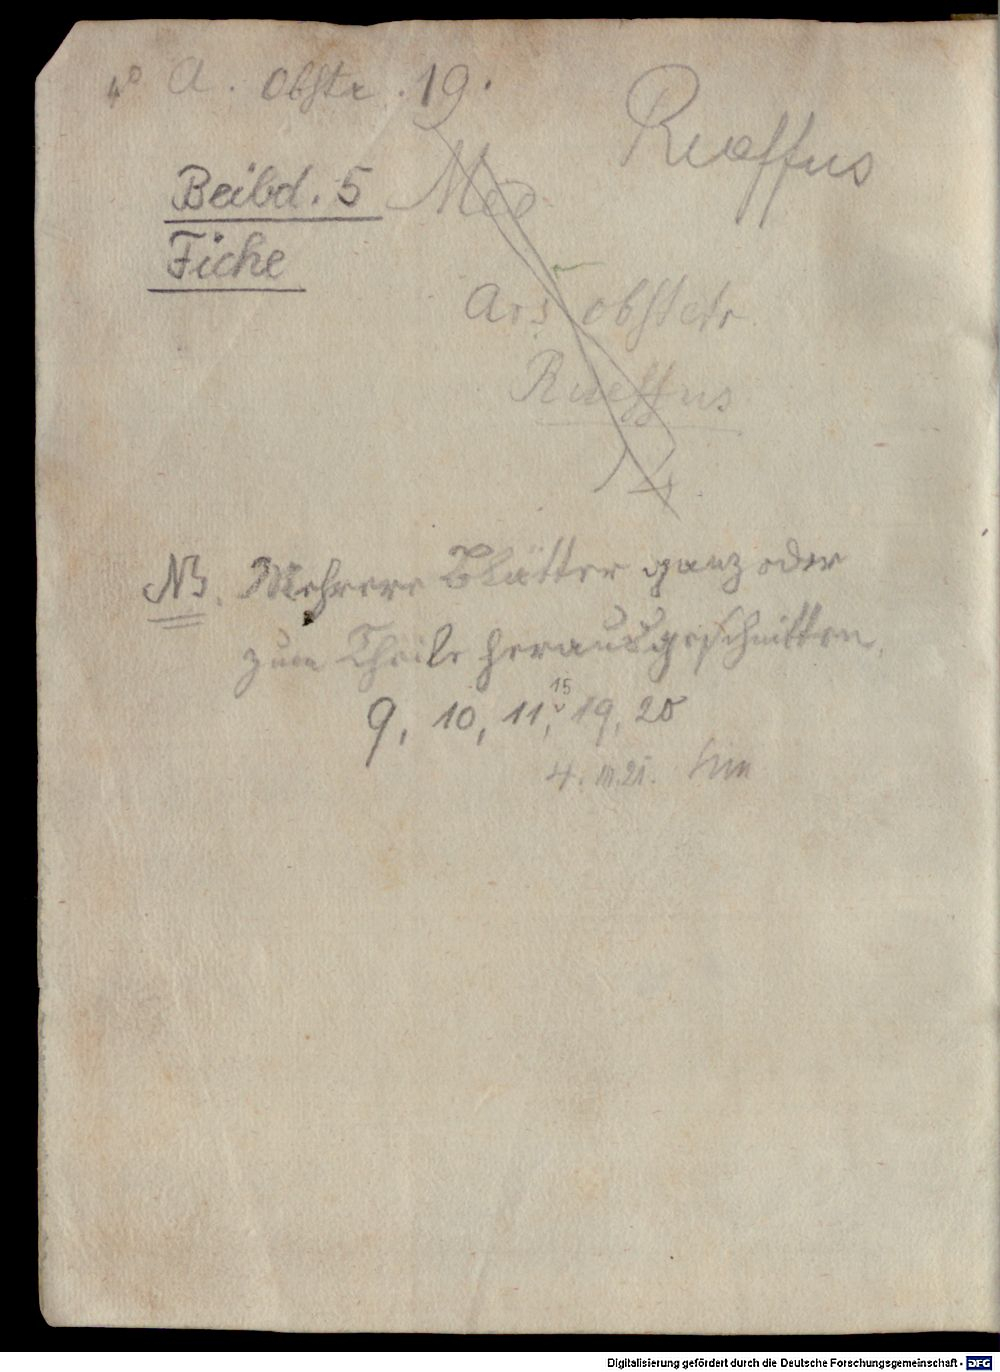 4° A. obstr. 19.
Rueffus
Beibd. 5
Fiche
Med
Ars obstetr
Rueffus
4
NB. Mehrere Blätter ganz oder
zum Theile herausgeschnitten.
9, 10, 11, 15, 19, 20
4. III. 21.
Digitalisierung gefördert durch die Deutsche Forschungsgemeinschaft - DFG